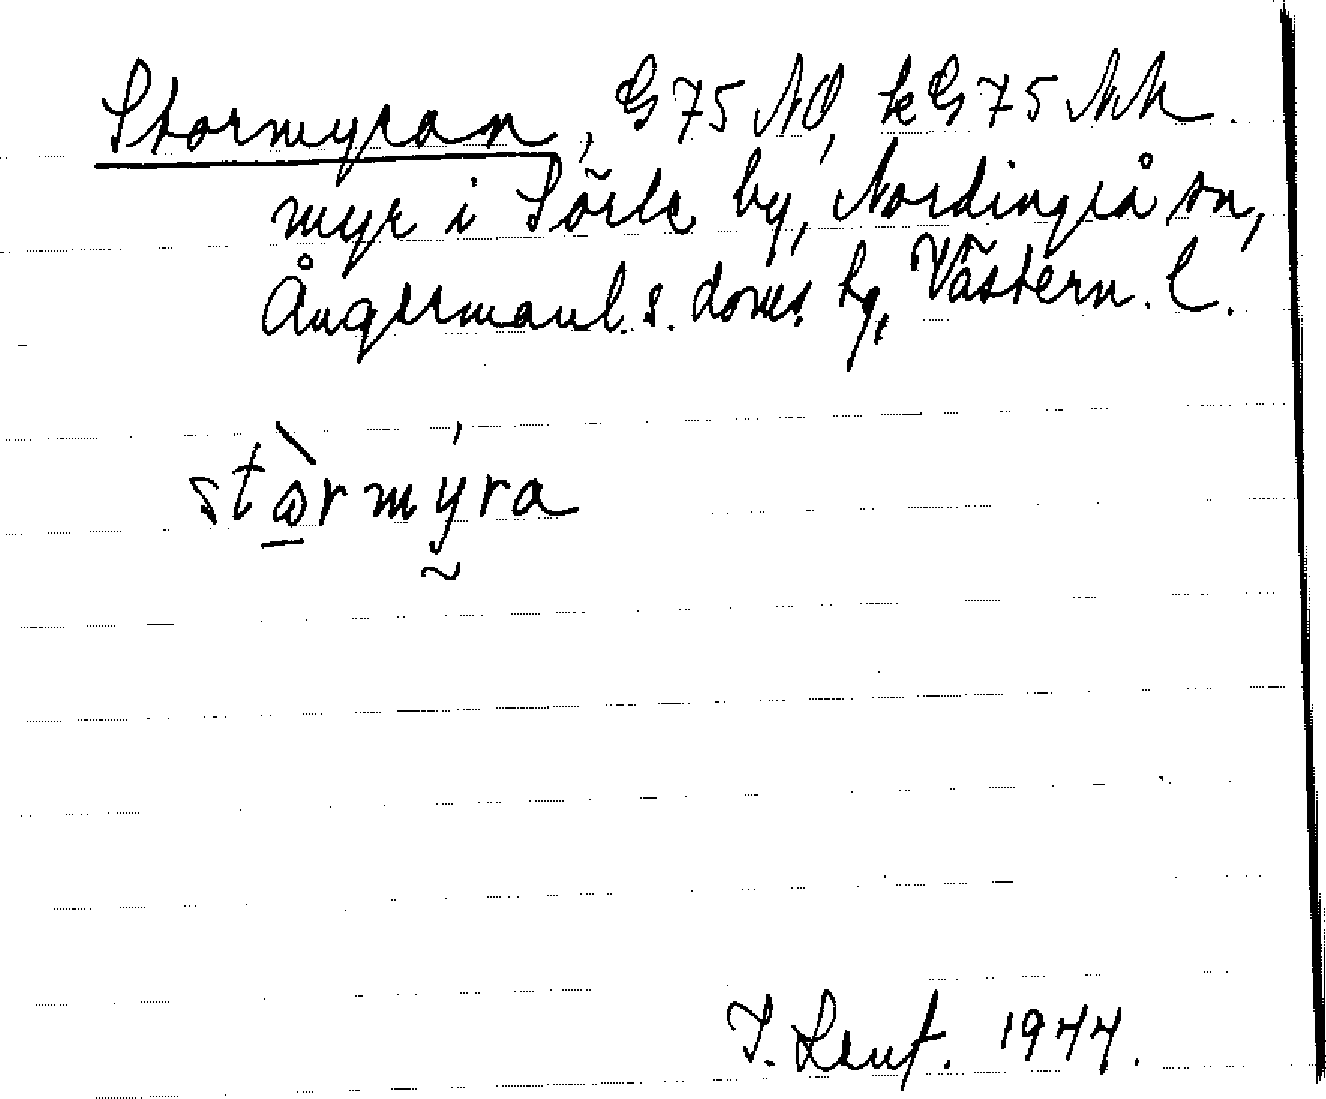 Stormyran, G 75 NO, kG 75 NN.
myr i Sörle by, Nordingrå sn,
Ångermanl. s. doms. hg, Västern. l.
stɷ̀rmýra
I. Leuf. 1944.